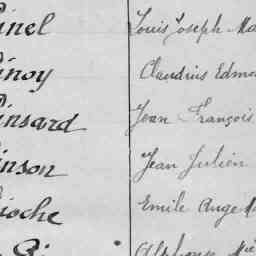 inel Louis Joseph Ma
inoy Claudius Edmo
insard Jean François
inson Jean Julien
ioche Emile Ange M
Alphonse